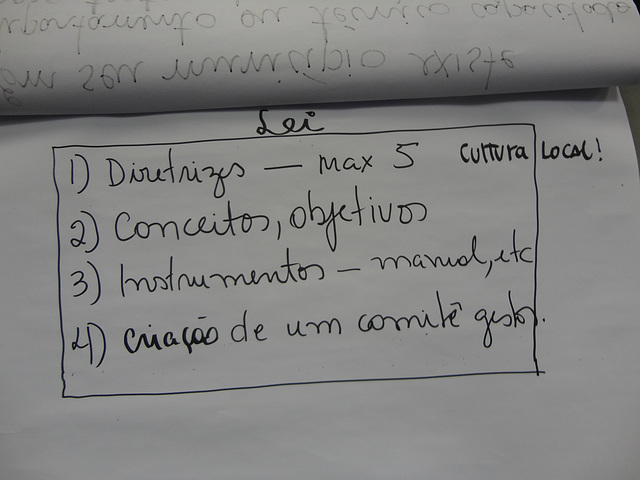 em seu município existe
Lei
1) Diretrizes — max 5 CULTURA LOCAL!
2) Conceitos, objetivos
3) Instrumentos — manual, etc
4) criação de um comitê gestor.